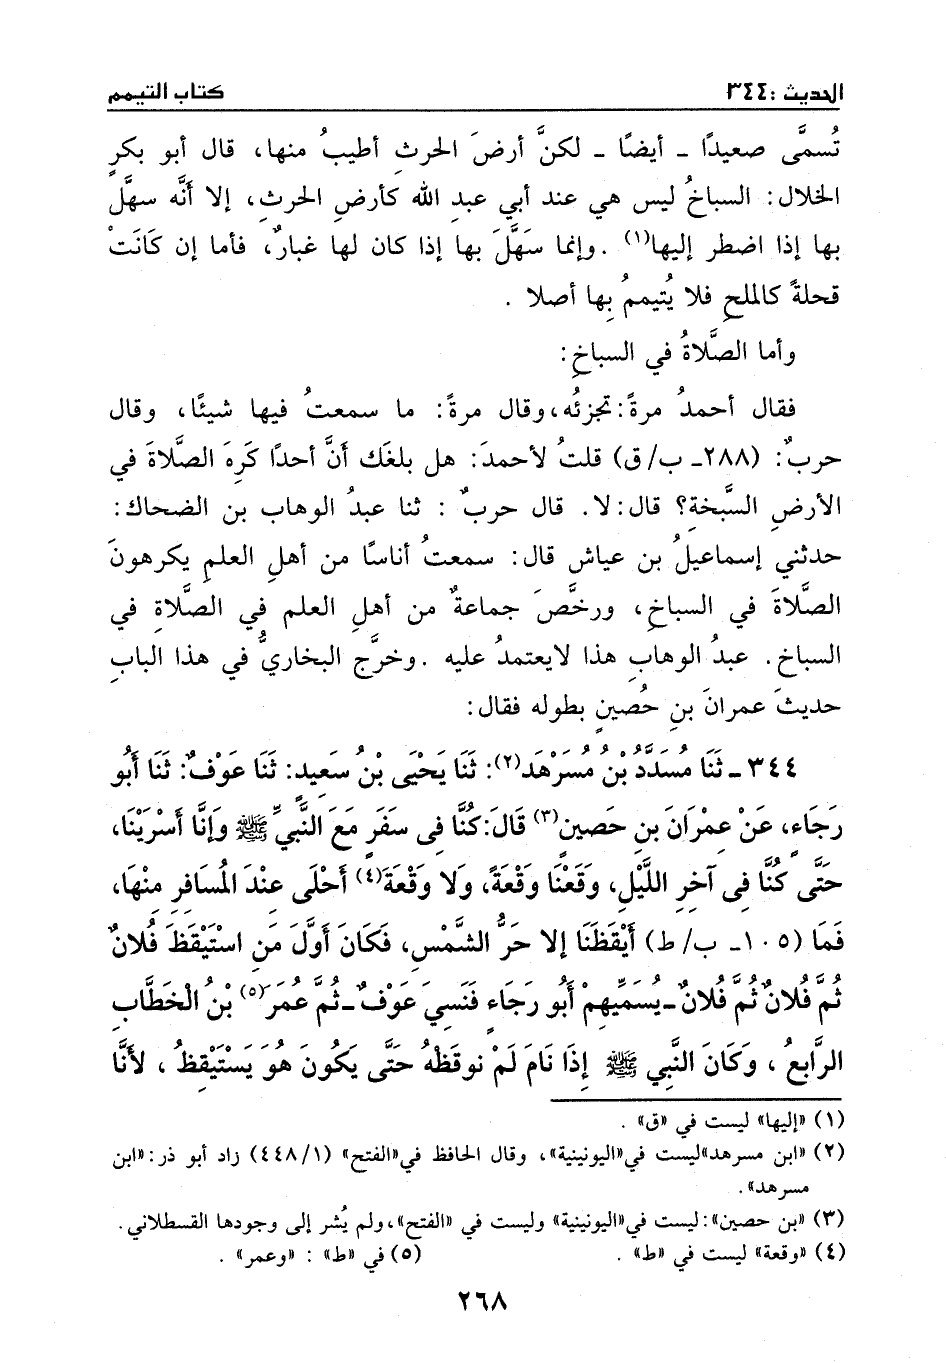 الحديث : ٣٤٤
كتاب التيمم
تُسمَّى صعيدًا ـ أيضًا ـ لكنَّ أرضَ الحرثِ أطيبُ منها، قال أبو بكرٍ
الخلال: السباخُ ليس هي عند أبي عبدِ الله كأرضِ الحرثِ، إلا أنَّه سهَّل
بها إذا اضطر إليها(١) . وإنما سَهَّلَ بها إذا كان لها غبارٌ، فأما إن كَانَتْ
قحلةً كالملحِ فلا يُتيممُ بِها أصلا .
وأما الصَّلاةُ في السباخِ:
فقال أحمدُ مرةً: تجزئُه، وقال مرةً: ما سمعتُ فيها شيئًا، وقال
حربٌ: (٢٨٨ـ ب/ ق) قلتُ لأحمدَ: هل بلغَك أنَّ أحدًا كَرِهَ الصَّلاةَ في
الأرضِ السَّبخةِ؟ قال: لا. قال حربٌ : ثنا عبدُ الوهاب بن الضحاك:
حدثني إسماعيلُ بن عياش قال: سمعتُ أناسًا من أهلِ العلمِ يكرهونَ
الصَّلاةَ في السباخِ، ورخَّصَ جماعةٌ من أهلِ العلم في الصَّلاةِ في
السباخِ. عبدُ الوهابِ هذا لايعتمدُ عليه . وخرَّج البخاريُّ في هذا البابِ
حديثَ عمرانَ بنِ حُصينٍ بطوله فقال:
٣٤٤ ـ ثَنَا مُسَدَّدُ بْنُ مُسَرْهَدَ(٢): ثَنَا يَحْيَى بْنُ سَعِيد: ثَنَا عَوْفٌ: ثَنَا أَبُو
رَجَاءٍ، عَنْ عِمْرَانَ بنِ حَصينٍ(٣) قَالَ: كُنَّا فِي سَفَرٍ مَعَ النَّبِيِّ ﷺ وَإِنَّا أَسْرَيْنَا،
حَتَّى كُنَّا فِي آخِرِ اللَّيْلِ، وَقَعْنَا وَقْعَةً، وَلا وَقْعَةَ(٤) أَحْلَى عنْدَ المُسَافِرِ مِنْهَا،
فَمَا (١٠٥ـ ب/ ط) أَيْقَظَنَا إلا حَرُّ الشَّمْسِ، فَكَانَ أَوَّلَ مَنِ اسْتَيْقَظَ فُلانٌ
ثُمَّ فُلانٌ ثُمَّ فُلانٌ ـ يُسَمِّيهِمْ أَبُو رَجَاءٍ فَنَسِيَ عَوْفٌ ـ ثُمَّ عُمَرَ(٥) بْنُ الْخَطَّابِ
الرَّابِعُ ، وَكَانَ النَّبِي ﷺ إِذَا نَامَ لَمْ نوقَظْهُ حَتَّى يَكُونَ هُوَ يَسْتَيْقِظُ ، لأَنَّا
(١) «إليها» ليست في «ق» .
(٢) «ابن مسرهد» ليست في «اليونينية»، وقال الحافظ في «الفتح» (١/ ٤٤٨) زاد أبو ذر: «ابن
مسرهد».
(٣) «بن حصين»: ليست في «اليونينية» وليست في «الفتح»، ولم يُشر إلى وجودها القسطلاني.
(٤) «وقعة» ليست في «ط» . (٥) في «ط» : «وعمر» .
٢٦٨